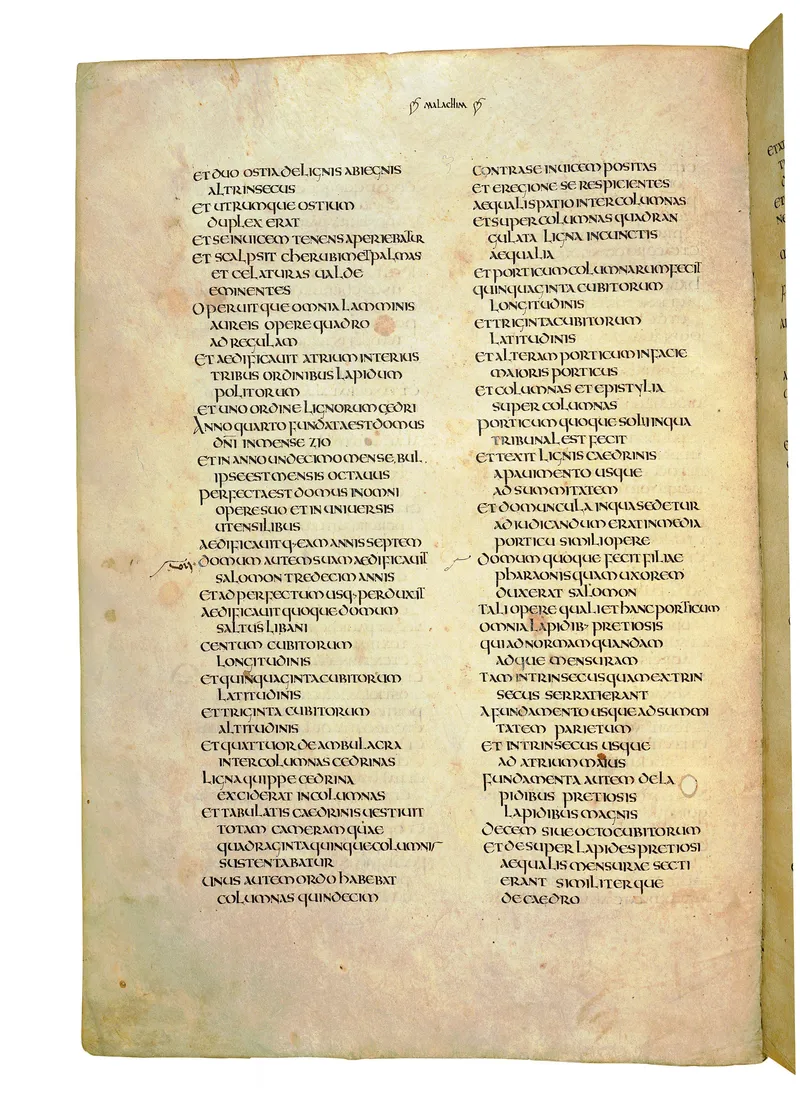 malachim
et duo ostia de lignis abiegnis
altrinsecus
et utrumque ostium
duplex erat
et se inuicem tenens aperiebatur
et scalpsit cherubim et palmas
et celaturas ualde
eminentes
operuitque omnia lamminis
aureis opere quadro
ad regulam
et aedificauit atrium interius
tribus ordinibus lapidum
politorum
et uno ordine lignorum cedri
anno quarto fundata est domus
dni in mense zio
et in anno undecimo mense bul.
ipse est mensis octauus
perfecta est domus in omni
opere suo et in uniersis
utensilibus
aedificauitq· eam annis septem
domum autem suam aedificauit
salomon tredecim annis
et ad perfectum usq· perduxit
aedificauit quoque domum
saltus libani
centum cubitorum
longitudinis
et quinquaginta cubitorum
latitudinis
et triginta cubitorum
altitudinis
et quattuor deambulacra
inter columnas cedrinas
ligna quippe cedrina
exciderat in columnas
et tabulatis caedrinis uestiuit
totam cameram quae
quadraginta quinque columnis
sustentabatur
unus autem ordo habebat
columnas quindecim
contra se inuicem positas
et e regione se respicientes
aequali spatio inter columnas
et super columnas quadran
gulata ligna in cunctis
aequalia
et porticum columnarum fecit
quinquaginta cubitorum
longitudinis
et triginta cubitorum
latitudinis
et alteram porticum in facie
maioris porticus
et columnas et epistylia
super columnas
porticum quoque solii in qua
tribunal est fecit
et texit lignis caedrinis
a pauimento usque
ad summitatem
et domuncula in qua sedetur
ad iudicandum erat in media
porticu simili opere
domum quoque fecit filiae
pharaonis quam uxorem
duxerat salomon
tali opere quali et hanc porticum
omnia lapidib· pretiosis
qui ad normam quandam
adque mensuram
tam intrinsecus quam extrin
secus serrati erant
a fundamento usque ad summi
tatem parietum
et intrinsecus usque
ad atrium maius
fundamenta autem de la
pidibus pretiosis
lapidibus magnis
decem siue octo cubitorum
et desuper lapides pretiosi
aequalis mensurae secti
erant similiterque
de caedro